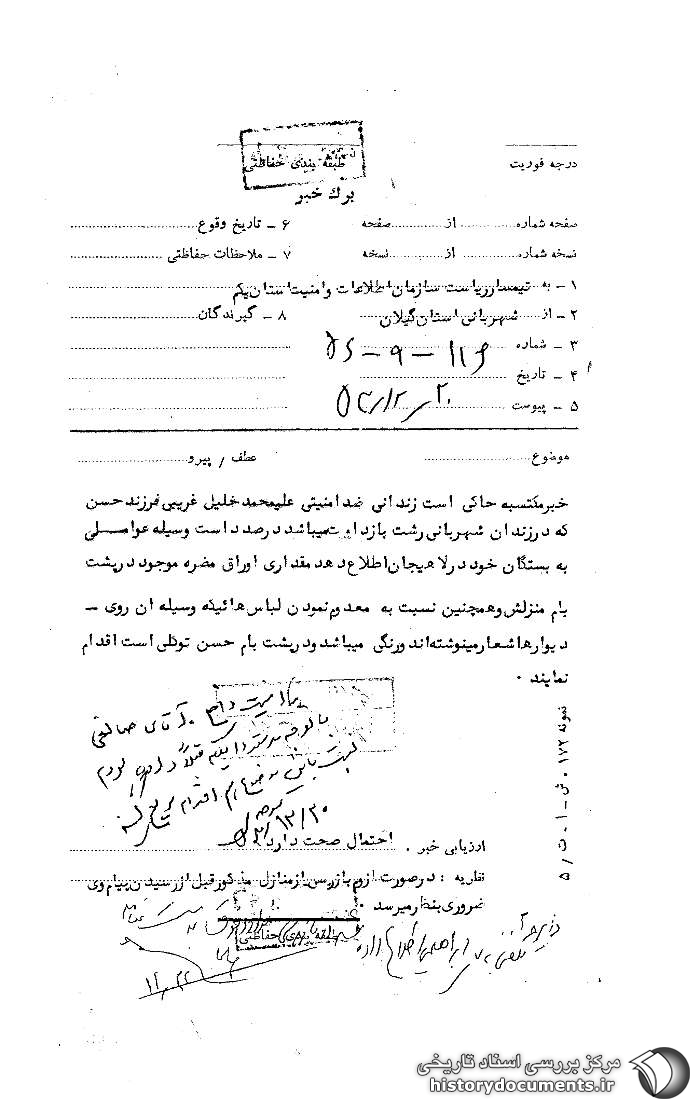 درجه فوریت
طبقه بندی حفاظتی
برگ خبر
صفحه شماره از صفحه
۶ ـ تاریخ وقوع
نسخه شماره از نسخه
۷ ـ ملاحظات حفاظتی
۱ ـ به تیمسار ریاست سازمان اطلاعات و امنیت استان یکم
۲ ـ از شهربانی استان گیلان
۸ ـ گیرندگان
۳ ـ شماره
۴ ـ تاریخ
۵ ـ پیوست
موضوع
عطف / پیرو
خبر مکتسبه حاکی است زندانی ضد امنیتی علیمحمد خلیل غریبی فرزند حسن
که در زندان شهربانی رشت بازداشت میباشد درصدد است وسیله عواملی
به بستگان خود در لاهیجان اطلاع دهد مقداری اوراق مضره موجود در پشت
بام منزلش و همچنین نسبت به معدوم نمودن لباس هائیکه وسیله ان روی ـ
دیوارها شعار مینوشته‌اند و رنگی میباشد و در پشت بام حسن توکلی است اقدام
نمایند ۰
نمونه ۱۷۲ ۰ ش ـ ۱ ۰ ت / ۵
آقای صالحی
اقدام
ارزیابی خبر ۰ احتمال صحت دارد
نظریه : در صورت لزوم بازرسی از منازل مذکور قبل از رسیدن پیام وی
ضروری بنظر میرسد ۰
طبقه بندی حفاظتی
تلفنی به ابراهیمی اطلاع داده
مرکز بررسی اسناد تاریخی
historydocuments.ir